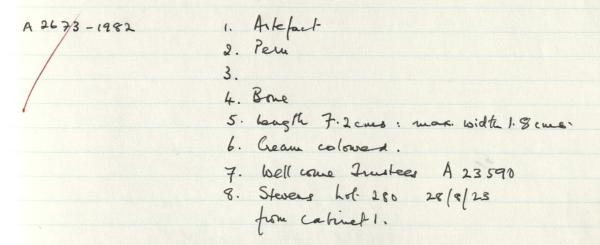 A 2673-1982
1. Artefact
2. Peru
3.
4. Bone
5. Length 7.2cms : max. width 1.8cms.
6. Cream coloured.
7. Wellcome Trustees A 23590
8. Stevens Lot. 280 28/8/23
from cabinet 1.